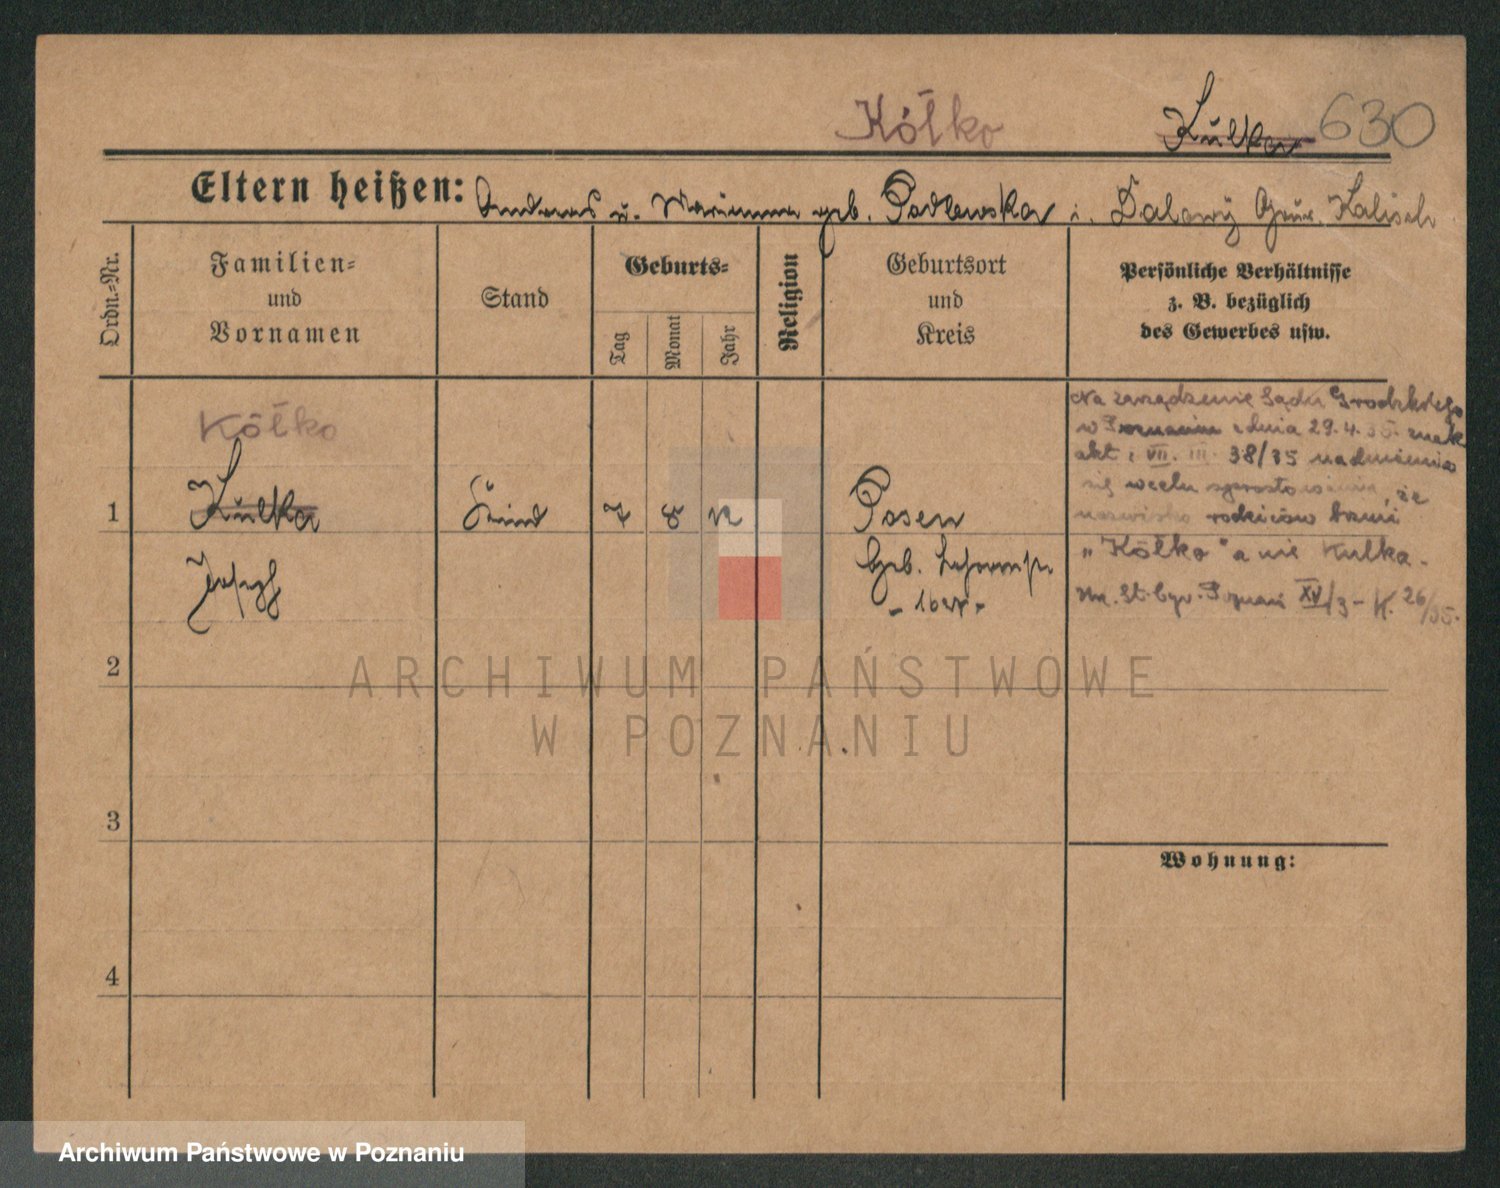 Kółko Kulka 630
Eltern heißen: Andreas u. Marianna geb. Podlewska i. Gouv. Kalisch
Ordn.=Nr.
Familien=
und
Vornamen
Stand
Geburts=
Tag
Monat
Jahr
Religion
Geburtsort
und
Kreis
Persönliche Verhältnisse
z. B. bezüglich
des Gewerbes usw.
Kółko
1 Kulka Kind 7 8 12 Posen
Joseph
Geb.
Na zarządzenie Sądu Grodzkiego
w Poznaniu z dnia 29.4.35. znak
akt: VII. III. 38/35 nadmienia
się w celu sprostowania, że
nazwisko rodziców brzmi
„Kółko" a nie Kulka.
Poznań XV/3 - K. 26/35.
2
3
4
Wohnung:
ARCHIWUM PAŃSTWOWE
W POZNANIU
Archiwum Państwowe w Poznaniu